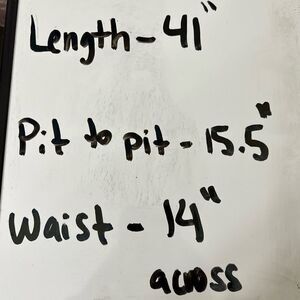 Length - 41"
Pit to pit - 15.5"
Waist - 14"
across